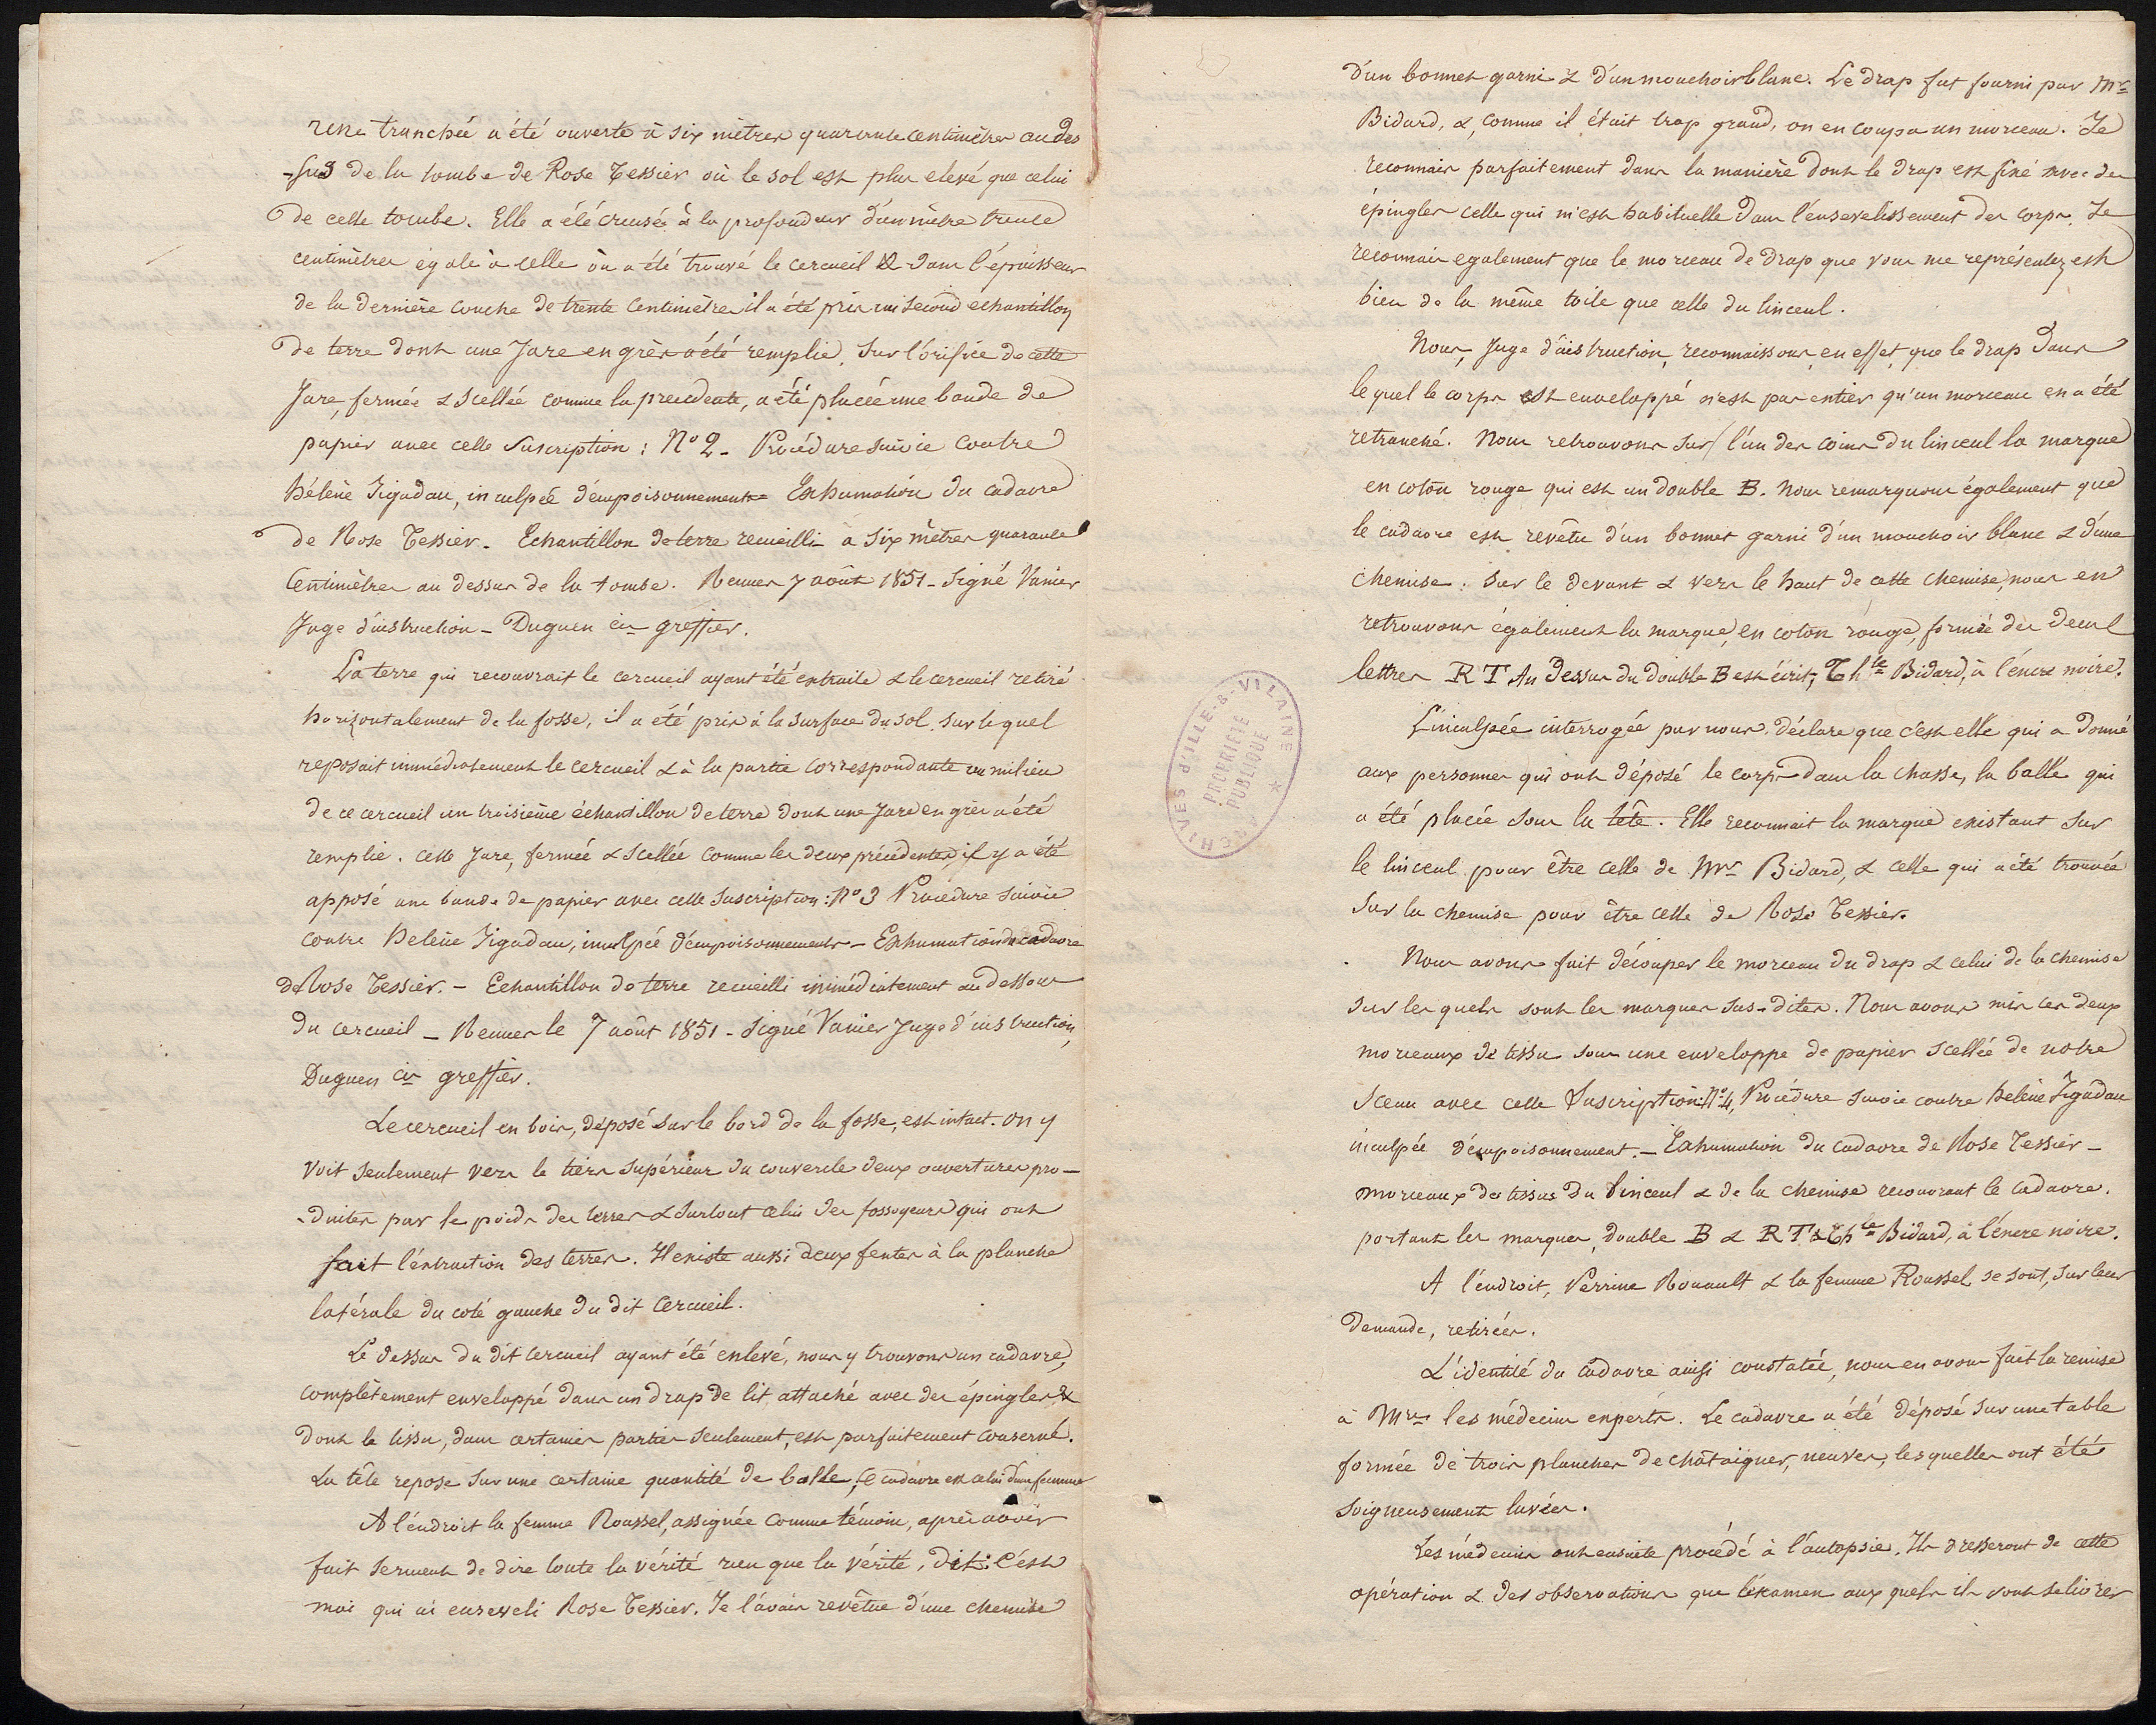 une tranchée a été ouverte à six mètres quarante centimètres au des
-sus de la tombe de Rose Tessier où le sol est plus elevé que celui
de cette tombe. Elle a été creusée à la profondeur d'un mètre trente
centimètres égale à celle où a été trouvé le cercueil & dans l'épaisseur
de la dernière couche de trente centimètres il a été pris un second echantillon
de terre dont une Jare en grès a été remplie. Sur l'orifice de cette
Jare, fermée & scellée comme la precedente, a été placée une bande de
papier avec cette suscription : N° 2 - Procédure suivie contre
hélène Jégadau, inculpée d'empoisonnements - Exhumation du cadavre
de Rose Tessier. Echantillon de terre recueilli à six mètres quarante
Centimètres au dessus de la tombe. Rennes 7 août 1851 - Signé Vanier
Juge d'instruction - Duguen cis greffier.
La terre qui recouvrait le cercueil ayant été extraite & le cercueil retiré
horizontalement de la fosse, il a été pris à la surface du sol sur lequel
reposait immédiatement le cercueil & à la partie correspondante au milieu
de ce cercueil un troisième échantillon de terre dont une Jare en grès a été
remplie. Cette Jare, fermée & scellée comme les deux précédentes, il y a été
apposé une bande de papier avec cette suscription : N° 3 Procédure suivie
contre Helène Jégadau, inculpée d'empoisonnements - Exhumation du cadavre
de Rose Tessier. - Echantillon de terre recueilli immédiatement au dessous
du cercueil - Rennes le 7 août 1851 - Signé Vanier Juge d'instruction,
Duguen cis greffier.
Le cercueil en bois, déposé sur le bord de la fosse, est intact. On y
voit seulement vers le tiers supérieur du couvercle deux ouvertures pro-
-duites par le poids des terres & surtout celui des fossoyeurs qui ont
fait l'extraction des terres. Il existe aussi deux fentes à la planche
latérale du coté gauche du dit cercueil.
Le dessus du dit cercueil ayant été enlevé, nous y trouvons un cadavre,
complètement enveloppé dans un drap de lit, attaché avec des épingles &
dont le tissu, dans certaines parties seulement, est parfaitement conservé.
La tête repose sur une certaine quantité de balle, le cadavre est celui d'une femme
A l'endroit la femme Roussel, assignée comme témoin, après avoir
fait serment de dire toute la vérité rien que la vérité, dit : C'est
moi qui ai enseveli Rose Tessier. Je l'avais revêtue d'une chemise
d'un bonnet garni & d'un mouchoir blanc. Le drap fut fourni par Mr
Bidard, &, comme il était trop grand, on en coupa un morceau. Je
reconnais parfaitement dans la manière dont le drap est fixé avec des
épingles celle qui m'est habituelle dans l'ensevelissement des corps. Je
reconnais egalement que le morceau de drap que vous me représentez est
bien de la même toile que celle du linceul.
Nous, Juge d'instruction, reconnaissons, en effet, que le drap dans
lequel le corps est enveloppé n'est pas entier qu'un morceau en a été
retranché. Nous retrouvons sur l'un des coins du linceul la marque
en coton rouge qui est un double B. Nous remarquons également que
le cadavre est revêtu d'un bonnet garni d'un mouchoir blanc & d'une
chemise. Sur le devant & vers le haut de cette chemise, nous en
retrouvons également la marque, en coton rouge, formée des deux
lettres R T Au dessus du double B est écrit, Thle Bidard, à l'encre noire.
L'inculpée interrogée par nous, déclare que c'est elle qui a donné
aux personnes qui ont déposé le corps dans la chasse, la balle qui
a été placée sous la tête. Elle reconnait la marque existant sur
le linceul pour être celle de Mr Bidard, & celle qui a été trouvée
sur la chemise pour être celle de Rose Tessier.
Nous avons fait découper le morceau du drap & celui de la chemise
sur lesquels sont les marques sus-dites. Nous avons mis ces deux
morceaux de tissu sous une enveloppe de papier scellée de notre
sceau avec cette suscription : N° 4, Procédure suivie contre helène Jégadau
inculpée d'empoisonnement. - Exhumation du cadavre de Rose Tessier -
morceaux des tissus du linceul & de la chemise recouvrant le cadavre,
portant les marques, double B & R T & Thle Bidard, à l'encre noire.
A l'endroit, Perrine Rouault & la femme Roussel se sont, sur leur
demande, retirées.
L'identité du cadavre ainsi constatée, nous en avons fait la remise
à Mrs les médecins experts. Le cadavre a été déposé sur une table
formée de trois planches de châtaigner, neuves, lesquelles ont été
soigneusement lavées.
Les médecins ont ensuite procédé à l'autopsie. Ils dresseront de cette
opération & des observations que l'examen auxquels ils vont se livrer
ARCHIVES d'ILLE-&-VILAINE
PROPRIÉTÉ
PUBLIQUE